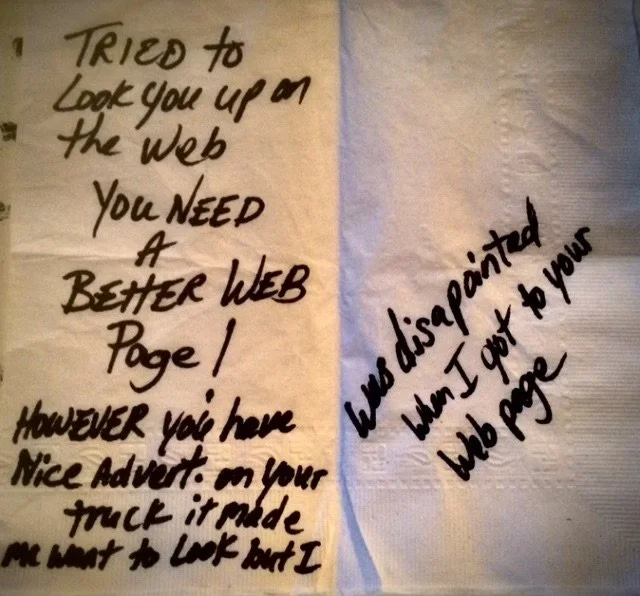 TRIED to
Look you up on
the Web
YOU NEED
A
BETTER WEB
Page !
HOWEVER you have
Nice Advert. on your
truck it made
me want to Look but I
was disapainted
when I got to your
Web page